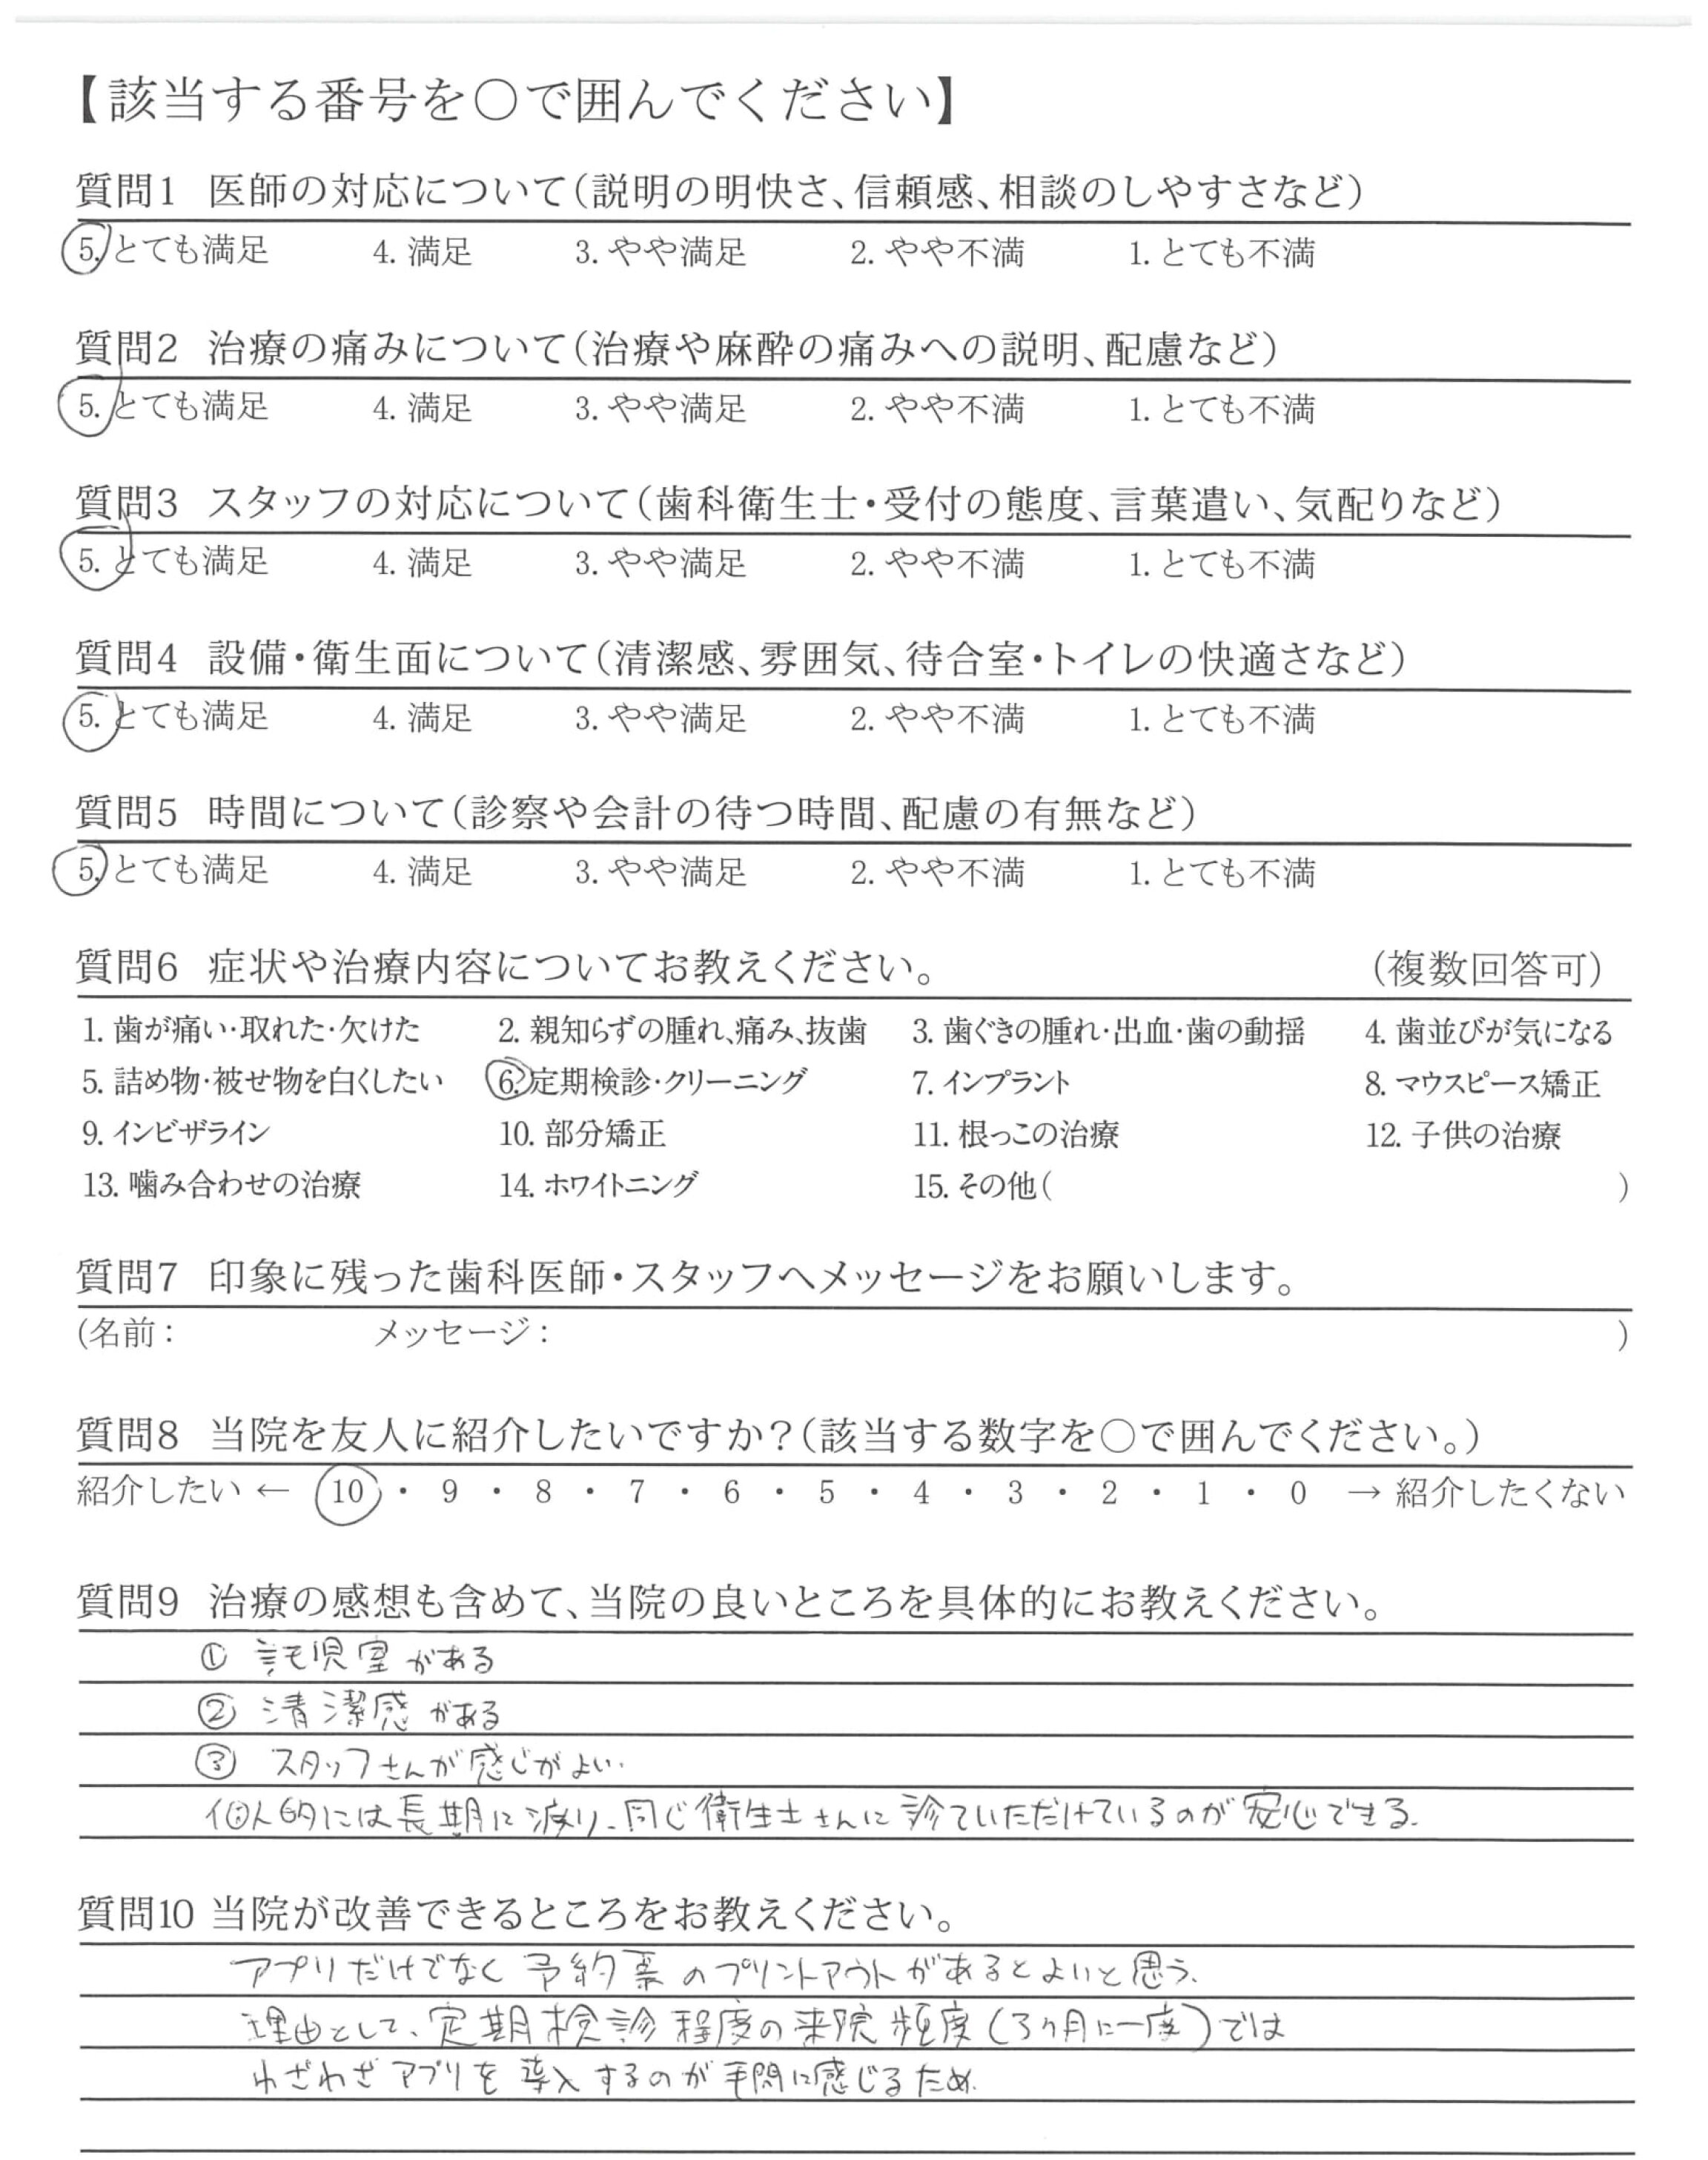 【該当する番号を○で囲んでください】
質問1 医師の対応について(説明の明快さ、信頼感、相談のしやすさなど)
5. とても満足 4. 満足 3. やや満足 2. やや不満 1. とても不満
質問2 治療の痛みについて(治療や麻酔の痛みへの説明、配慮など)
5. とても満足 4. 満足 3. やや満足 2. やや不満 1. とても不満
質問3 スタッフの対応について(歯科衛生士・受付の態度、言葉遣い、気配りなど)
5. とても満足 4. 満足 3. やや満足 2. やや不満 1. とても不満
質問4 設備・衛生面について(清潔感、雰囲気、待合室・トイレの快適さなど)
5. とても満足 4. 満足 3. やや満足 2. やや不満 1. とても不満
質問5 時間について(診察や会計の待つ時間、配慮の有無など)
5. とても満足 4. 満足 3. やや満足 2. やや不満 1. とても不満
質問6 症状や治療内容についてお教えください。 (複数回答可)
1. 歯が痛い・取れた・欠けた 2. 親知らずの腫れ、痛み、抜歯 3. 歯ぐきの腫れ・出血・歯の動揺 4. 歯並びが気になる
5. 詰め物・被せ物を白くしたい 6. 定期検診・クリーニング 7. インプラント 8. マウスピース矯正
9. インビザライン 10. 部分矯正 11. 根っこの治療 12. 子供の治療
13. 噛み合わせの治療 14. ホワイトニング 15. その他( )
質問7 印象に残った歯科医師・スタッフへメッセージをお願いします。
(名前: メッセージ: )
質問8 当院を友人に紹介したいですか?(該当する数字を○で囲んでください。)
紹介したい ← 10 ・ 9 ・ 8 ・ 7 ・ 6 ・ 5 ・ 4 ・ 3 ・ 2 ・ 1 ・ 0 → 紹介したくない
質問9 治療の感想も含めて、当院の良いところを具体的にお教えください。
① 託児室がある
② 清潔感がある
③ スタッフさんが感じがよい.
個人的には長期に渡り、同じ衛生士さんに診ていただけているのが安心できる.
質問10 当院が改善できるところをお教えください。
アプリだけでなく予約票のプリントアウトがあるとよいと思う.
理由として、定期検診程度の来院頻度(3ヶ月に一度)では
わざわざアプリを導入するのが手間に感じるため.